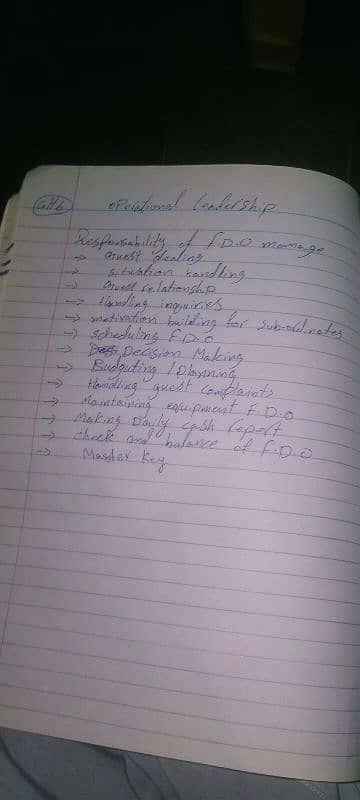 operational Leadership
Responsability of F.D.O manage
→ Guest dealing
→ situation handling
→ Guest relationship
→ Handling inquiries
→ motivation building for sub-ordinates
→ scheduling F.D.O
→ Decision Making
→ Budguting / Planning
→ Handling guest complaints
→ Maintaining equipment F.D.O
→ Making Daily cash report
→ check and balance of F.D.O
→ Master Key